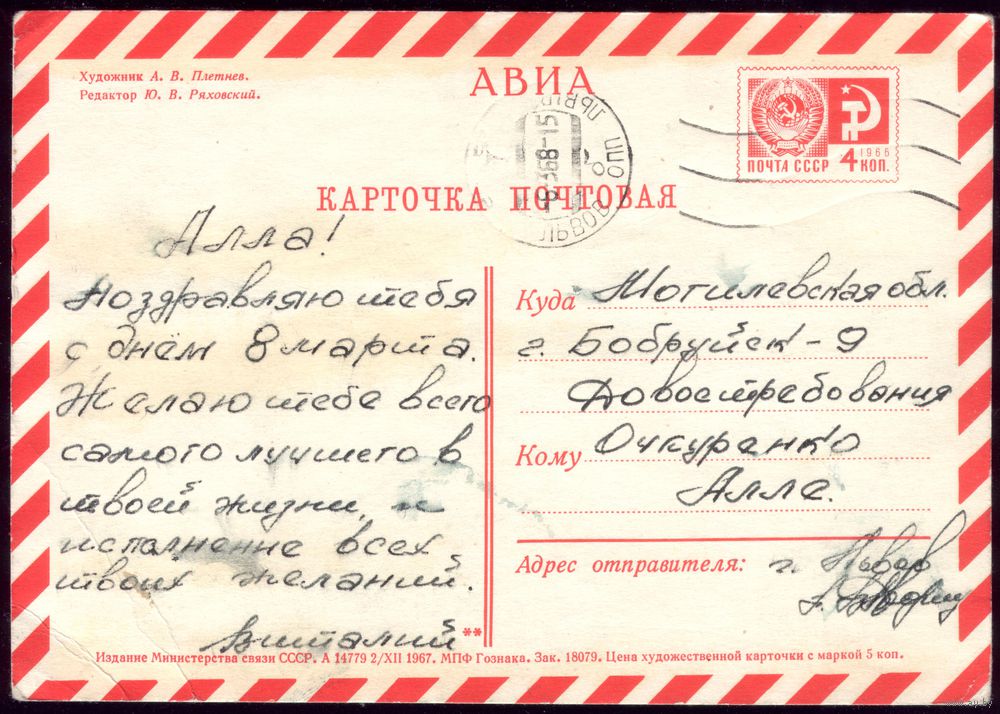 Художник А. В. Плетнев.
Редактор Ю. В. Ряховский.
АВИА
ПОЧТА СССР
1966
4 КОП.
ЛЬВІВ
ЛЬВОВ ПОПП
КАРТОЧКА ПОЧТОВАЯ
Алла!
Поздравляю тебя
с днём 8 марта.
Желаю тебе всего
самого лучшего в
твоей жизни, и
исполнение всех
твоих желаний.
Виталий
Куда Могилевская обл.
г. Бобруйск-9
Довостребования
Кому Очкуренко
Алле.
Адрес отправителя: г. Львов
**
Издание Министерства связи СССР. А 14779 2/XII 1967. МПФ Гознака. Зак. 18079. Цена художественной карточки с маркой 5 коп.
www.ay.by